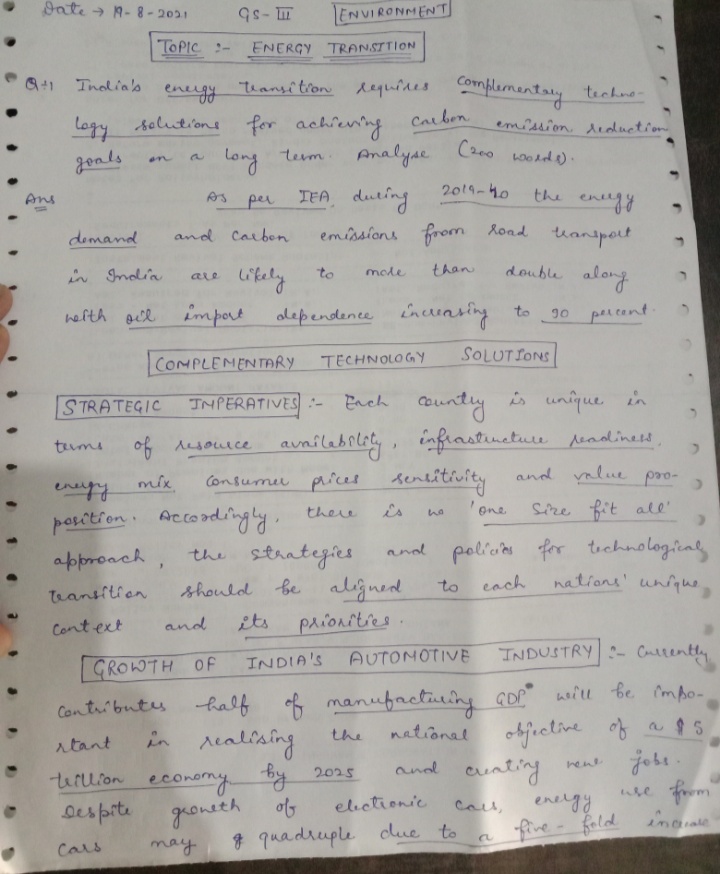 Date → 19-8-2021 GS-III ENVIRONMENT
TOPIC :- ENERGY TRANSITION
Q:1 India's energy transition requires complementary techno-
logy solutions for achieving carbon emission reduction
goals on a long term. Analyse (200 words).
Ans As per IEA, during 2019-40 the energy
demand and carbon emissions from road transport
in India are likely to more than double along
with oil import dependence increasing to 90 percent.
COMPLEMENTARY TECHNOLOGY SOLUTIONS
STRATEGIC IMPERATIVES :- Each country is unique in
terms of resource availability, infrastructure readiness,
energy mix, consumer prices sensitivity and value pro-
position. Accordingly, there is no 'one size fit all'
approach, the strategies and policies for technological
transition should be aligned to each nations' unique
context and its priorities.
GROWTH OF INDIA'S AUTOMOTIVE INDUSTRY :- Currently
contributes half of manufacturing GDP will be impo-
rtant in realising the national objective of a $ 5
trillion economy by 2025 and creating new jobs.
Despite growth of electronic cars, energy use from
cars may quadruple due to a five-fold increase